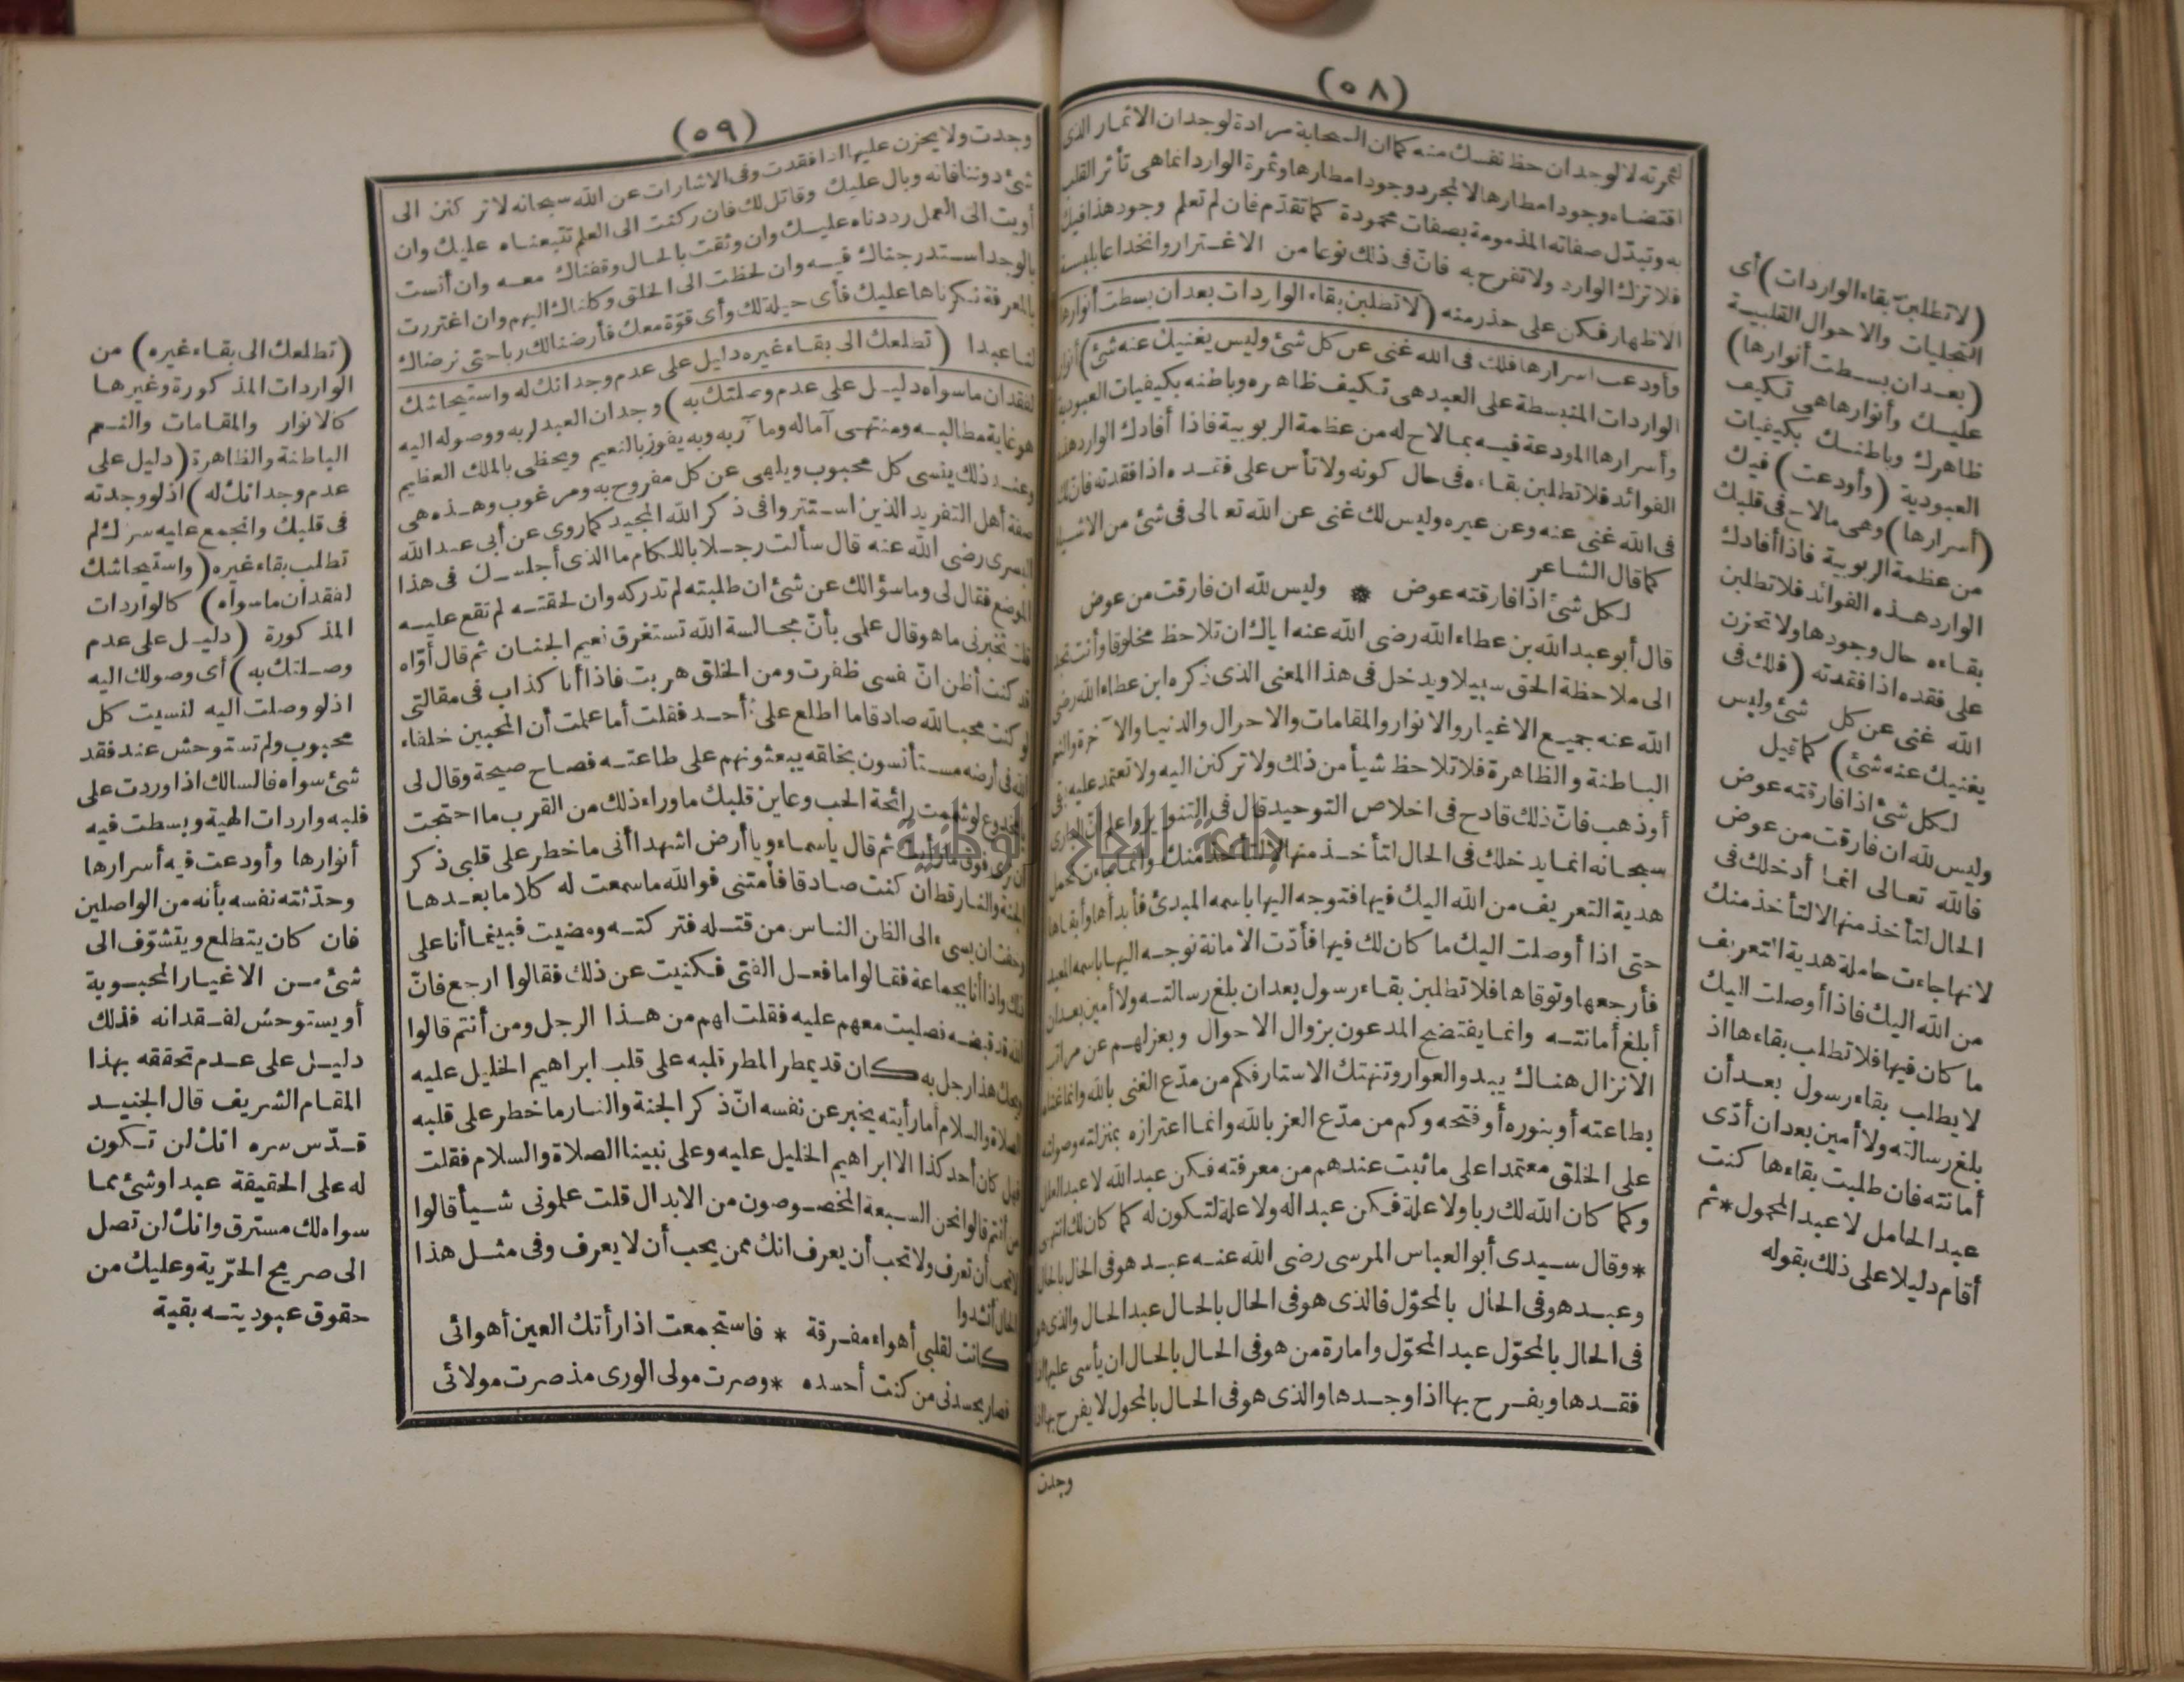 (٥٨)
لثمرته لا لوجدان حظ نفسك منه كما ان السحابة مرادة لوجدان الاثمار الذى
اقتضاه وجود امطارها لا لمجرد وجود امطارها وثمرة الوارد انما هى تأثر القلب
به وتبدّل صفاته المذمومة بصفات محمودة كما تقدّم فان لم تعلم وجود هذا فيك
فلا تزك الوارد ولا تفرح به فانّ فى ذلك نوعا من الاغترار وانخداعا بلبسة
الاظهار فكن على حذر منه (لا تطلبن بقاء الواردات بعد ان بسطت أنوارها
وأودعت اسرارها فلك فى الله غنى عن كل شئ وليس يغنيك عنه شئ) أنوار
الواردات المنبسطة على العبد هى تكيف ظاهره وباطنه بكيفيات العبودية
وأسرارها المودعة فيه بما لاح له من عظمة الربوبية فاذا أفادك الوارد هذه
الفوائد فلا تطلبن بقاءه فى حال كونه ولا تأس على فقده اذا فقدته فانّ لك
فى الله غنى عنه وعن غيره وليس لك غنى عن الله تعالى فى شئ من الاشياء
كما قال الشاعر
لكل شئ اذا فارقته عوض * وليس لله ان فارقت من عوض
قال أبو عبد الله بن عطاء الله رضى الله عنه اياك ان تلاحظ مخلوقا وأنت تجد
الى ملاحظة الحق سبيلا ويدخل فى هذا المعنى الذى ذكره ابن عطاء الله رضى
الله عنه جميع الاغيار والانوار والمقامات والاحوال والدنيا والآخرة والنعم
الباطنة والظاهرة فلا تلاحظ شيأ من ذلك ولا تركنن اليه ولا تعتمد عليه بقى
أو ذهب فانّ ذلك قادح فى اخلاص التوحيد قال فى التنوير واعلم انّ البارى
سبحانه انما يدخلك فى الحال لتأخذ منها لا لتأخذ منك وانما جاءت تحمل
هدية التعريف من الله اليك فيها فتوجه اليها باسمه المبدئ فأبدأها وأبقاها
حتى اذا أوصلت اليك ما كان لك فيها فأدّت الامانة توجه اليها باسمه المعيد
فأرجعها وتوفاها فلا تطلبن بقاء رسول بعد ان بلغ رسالته ولا أمين بعد ان
أبلغ أمانته وانما يفتضح المدعون بزوال الاحوال وبعزلهم عن مراتب
الانزال هناك يبدو العوار وتنهتك الاستار فكم من مدّع الغنى بالله وانما غناه
بطاعته أو بنوره أو فتحه وكم من مدّع العز بالله وانما اعتزازه بمنزلته وصولته
على الخلق معتمدا على ما ثبت عندهم من معرفته فكن عبد الله لا عبد العلل
وكما كان الله لك ربا ولا علة فكن عبد اله ولا علة لتكون له كما كان لك انتهى
* وقال سيدى أبو العباس المرسى رضى الله عنه عبد هو فى الحال بالحال
وعبد هو فى الحال بالمحوّل فالذى هو فى الحال بالحال عبد الحال والذى هو
فى الحال بالمحوّل عبد المحوّل وامارة من هو فى الحال بالحال ان يأسى عليها اذا
فقدها ويفرح بها اذا وجدها والذى هو فى الحال بالمحول لا يفرح بها اذا
وجدت
(لا تطلبنّ بقاء الواردات) أى
التجليات والاحوال القلبية
(بعد ان بسطت أنوارها)
عليك وأنوارها هى تكيف
ظاهرك وباطنك بكيفيات
العبودية (وأودعت) فيك
(أسرارها) وهى ما لاح فى قلبك
من عظمة الربوبية فاذا أفادك
الوارد هذه الفوائد فلا تطلبن
بقاءه حال وجودها ولا تحزن
على فقده اذا فقدته (فلك فى
الله غنى عن كل شئ وليس
يغنيك عنه شئ) كما قيل
لكل شئ اذا فارقته عوض
وليس لله ان فارقت من عوض
فالله تعالى انما أدخلك فى
الحال لتأخذ منها لا لتأخذ منك
لانها جاءت حاملة هدية التعريف
من الله اليك فاذا أوصلت اليك
ما كان فيها فلا تطلب بقاءها اذ
لا يطلب بقاء رسول بعد أن
بلغ رسالته ولا أمين بعد ان أدّى
أمانته فان طلبت بقاءها كنت
عبد الحامل لا عبد المحمول * ثم
أقام دليلا على ذلك بقوله
(٥٩)
وجدت ولا يحزن عليها اذا فقدت وفى الاشارات عن الله سبحانه لا تركنن الى
شئ دوننا فانه وبال عليك وقاتل لك فان ركنت الى العلم تتبعناه عليك وان
أويت الى العمل رددناه عليك وان وثقت بالحال وقفناك معه وان أنست
بالوجد استدرجناك فيه وان لحظت الى الخلق وكلناك اليهم وان اغتررت
بالمعرفة نكرناها عليك فأى حيلة لك وأى قوّة معك فأرضنا لك ربا حتى نرضاك
لنا عبدا (تطلعك الى بقاء غيره دليل على عدم وجدانك له واستيحاشك
لفقدان ما سواه دليل على عدم وصلتك به) وجدان العبد لربه ووصوله اليه
هو غاية مطالبه ومنتهى آماله ومآربه وبه يفوز بالنعيم ويحظى بالملك العظيم
وعند ذلك ينسى كل محبوب ويلهى عن كل مفروح به ومرغوب وهذه هى
صفة أهل التفريد الذين استتروا فى ذكر الله المجيد كما روى عن أبى عبد الله
البسرى رضى الله عنه قال سألت رجلا باللكام ما الذى أجلسك فى هذا
الموضع فقال لى وما سؤالك عن شئ ان طلبته لم تدركه وان لحقته لم تقع عليه
قلت تخبرنى ما هو قال علمى بأنّ مجالسة الله تستغرق نعيم الجنان ثم قال أوّاه
قد كنت أظن انّ نفسى ظفرت ومن الخلق هربت فاذا أنا كذاب فى مقالتى
لو كنت محبا لله صادقا ما اطلع علىّ أحد فقلت أما علمت أن المحبين خلفاء
الله فى أرضه مستأنسون بخلقه يبعثونهم على طاعته فصاح صيحة وقال لى
يا مخدوع لو شممت رائحة الحب وعاين قلبك ما وراء ذلك من القرب ما احتجت
أن ترى فوق ما رأيت ثم قال يا سماء ويا أرض اشهدا أنى ما خطر على قلبى ذكر
الجنة والنار قط ان كنت صادقا فأمتنى فوالله ما سمعت له كلاما بعدها
وخفت ان يسىء الى الظن الناس من قتله فتركته ومضيت فبينما أنا على
ذلك واذا أنا بجماعة فقالوا ما فعل الفتى فكنيت عن ذلك فقالوا ارجع فانّ
الله قد قبضه فصليت معهم عليه فقلت لهم من هذا الرجل ومن أنتم قالوا
ويحك هذا رجل به كان قد يمطر المطر قلبه على قلب ابراهيم الخليل عليه
الصلاة والسلام أما رأيته يخبر عن نفسه انّ ذكر الجنة والنار ما خطر على قلبه
فهل كان أحد كذا الا ابراهيم الخليل عليه وعلى نبينا الصلاة والسلام فقلت
من أنتم قالوا نحن السبعة المخصوصون من الابدال قلت علمونى شيأ قالوا
لا تحب أن تعرف ولا تحب أن يعرف انك ممن يحب أن لا يعرف وفى مثل هذا
الحال أنشدوا
كانت لقلبى أهواء مفرقة * فاستجمعت اذ رأتك العين أهوائى
فصار يحسدنى من كنت أحسده * وصرت مولى الورى مذ صرت مولائى
(تطلعك الى بقاء غيره) من
الواردات المذكورة وغيرها
كالانوار والمقامات والنعم
الباطنة والظاهرة (دليل على
عدم وجدانك له) اذ لو وجدته
فى قلبك وانجمع عليه سرك لم
تطلب بقاء غيره (واستيحاشك
لفقدان ما سواه) كالواردات
المذكورة (دليل على عدم
وصلتك به) أى وصولك اليه
اذ لو وصلت اليه لنسيت كل
محبوب ولم تستوحش عند فقد
شئ سواه فالسالك اذا وردت على
قلبه واردات الهية وبسطت فيه
أنوارها وأودعت فيه أسرارها
وحدّثته نفسه بأنه من الواصلين
فان كان يتطلع ويتشوّف الى
شئ من الاغيار المحبوبة
أو يستوحش لفقدانه فذلك
دليل على عدم تحققه بهذا
المقام الشريف قال الجنيد
قدّس سره انك لن تكون
له على الحقيقة عبدا وشئ مما
سواه لك مسترق وانك لن تصل
الى صريح الحرّية وعليك من
حقوق عبوديته بقية
جامعة النجاح الوطنية